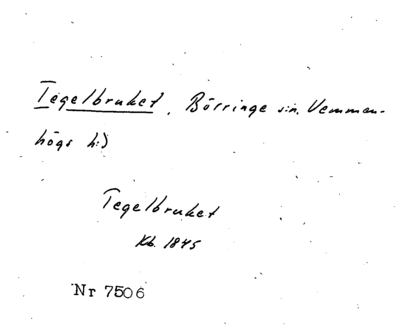 Tegelbruket, Börringe sn, Vemmen-
högs hd
Tegelbruket
Kb. 1845
Nr 7506